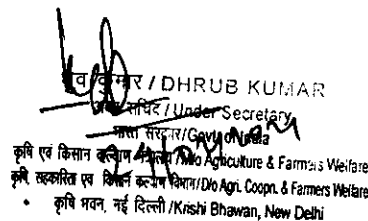 कुमार / DHRUB KUMAR
सचिव / Under Secretary
भारत सरकार/Govt. of India
कृषि एवं किसान कल्याण मंत्रालय / M/o Agriculture & Farmers Welfare
कृषि, सहकारिता एवं किसान कल्याण विभाग/D/o Agri. Coopn. & Farmers Welfare
कृषि भवन, नई दिल्ली /Krishi Bhawan, New Delhi